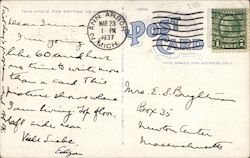 THIS SPACE FOR WRITING ME
ANN ARBOR
MAR 23
1 PM
1937
MICH.
POST
CARD
THIS SPACE FOR ADDRESS ONLY
Dear
I'm going
like 60 and have
no time to write more
than a card. This
picture shows where
I am living: 3d floor,
left side rear
Edgar
Mrs. E. S. Brightman
Box 35
Newton Center
Massachusetts